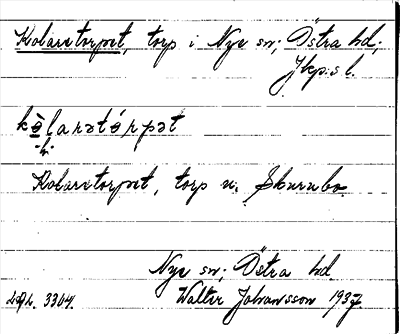 Kolaretorpet, torp i Nye sn; Östra hd;
Jkp:s l.
kòlarətórpət
-ó-
Kolaretorpet, torp u. Skurubo
Nye sn; Östra hd
Walter Johansson 1937
3304.